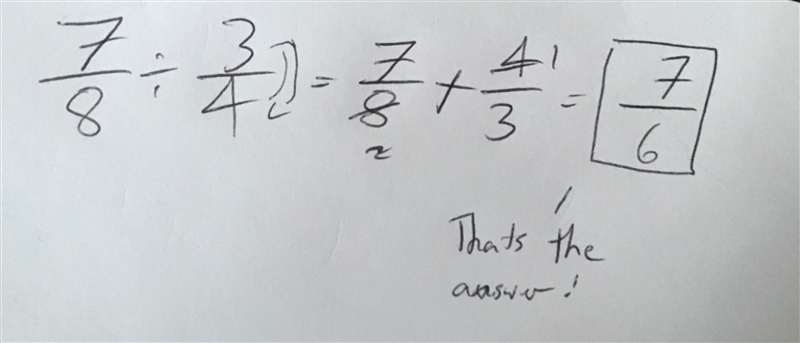 7/8 ÷ 3/4 = 7/8 × 4/3 = 7/6
2 1
Thats the
answer!